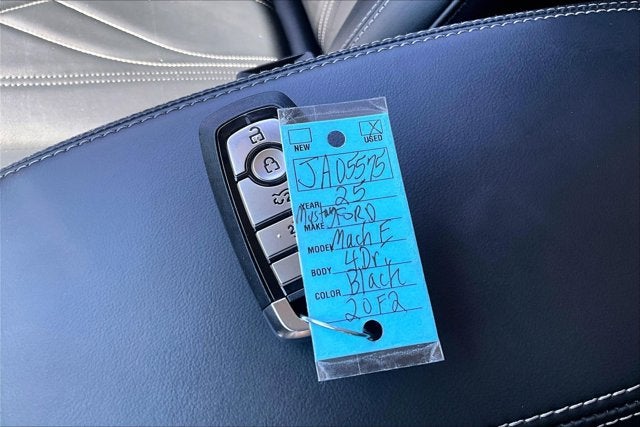 X
NEW USED
JA05575
YEAR 25
Mustang
MAKE FORD
MODEL Mach E
BODY 4Dr,
COLOR Black
20F2